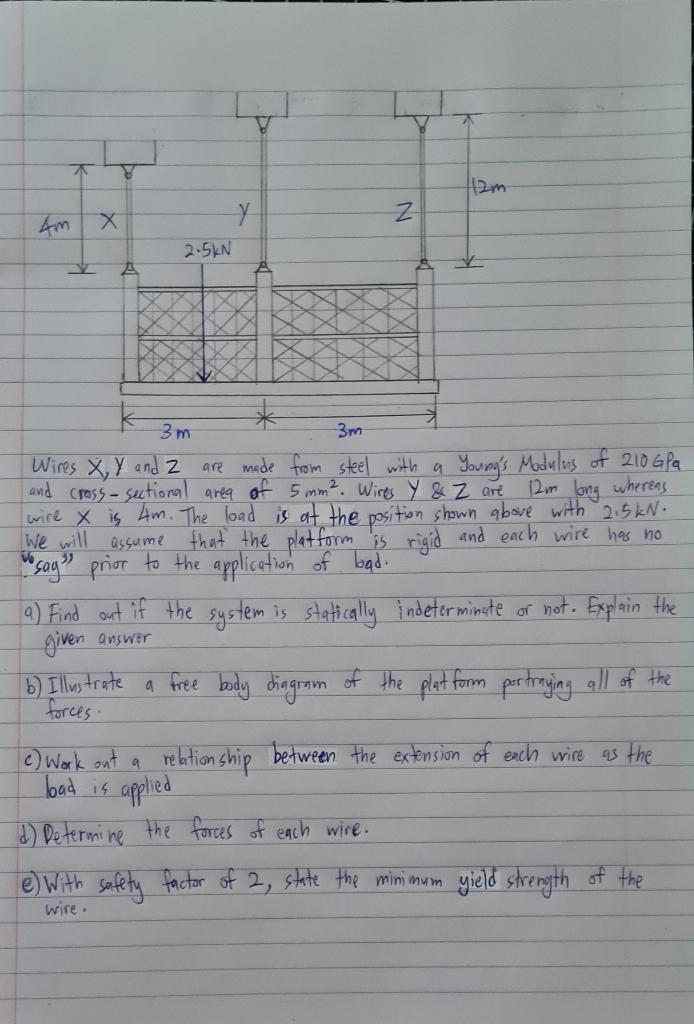 12m
4m X Y Z
2.5kN
3m 3m
Wires X, Y and Z are made from steel with a Young's Modulus of 210 GPa
and cross-sectional area of 5 mm². Wires Y & Z are 12m long whereas
wire X is 4m. The load is at the position shown above with 2.5kN.
We will assume that the platform is rigid and each wire has no
"sag" prior to the application of load.
a) Find out if the system is statically indeterminate or not. Explain the
given answer
b) Illustrate a free body diagram of the platform portraying all of the
forces.
c) Work out a relationship between the extension of each wire as the
load is applied
d) Determine the forces of each wire.
e) With safety factor of 2, state the minimum yield strength of the
wire.